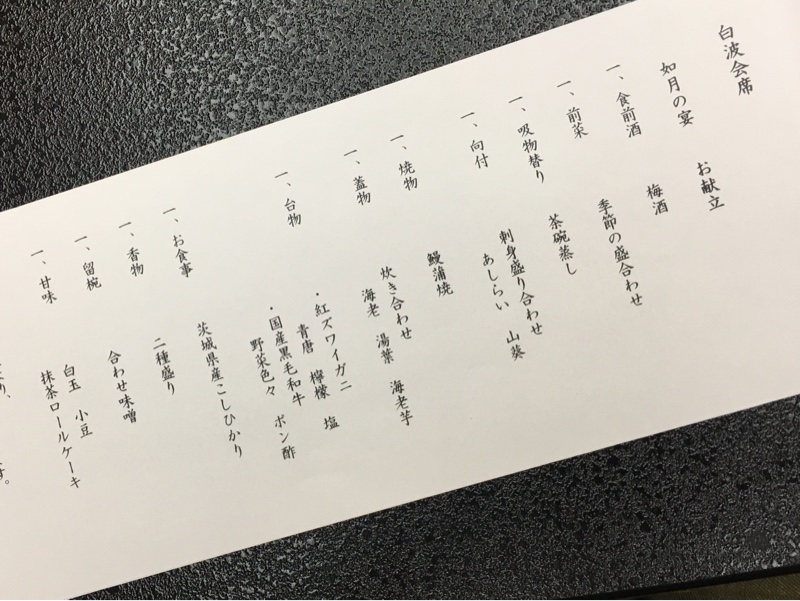 白波会席
如月の宴 お献立
一、食前酒 梅酒
一、前菜 季節の盛合わせ
一、吸物替り 茶碗蒸し
一、向付 刺身盛り合わせ
あしらい 山葵
一、焼物 鰻蒲焼
一、蓋物 炊き合わせ
海老 湯葉 海老芋
一、台物 ・紅ズワイガニ
青唐 檸檬 塩
・国産黒毛和牛
野菜色々 ポン酢
一、お食事 茨城県産こしひかり
一、香物 二種盛り
一、留椀 合わせ味噌
一、甘味 白玉 小豆
抹茶ロールケーキ